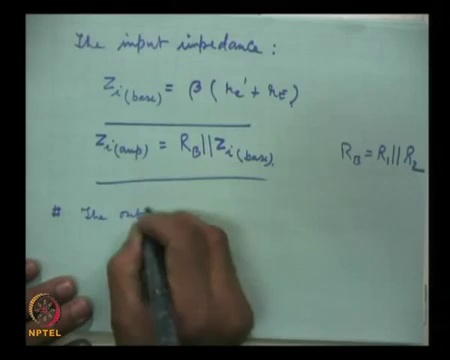 The input impedance :
Zi(base) = β ( re' + rE )
Zi(amp) = RB || Zi(base).
RB = R1 || R2
# The out
NPTEL